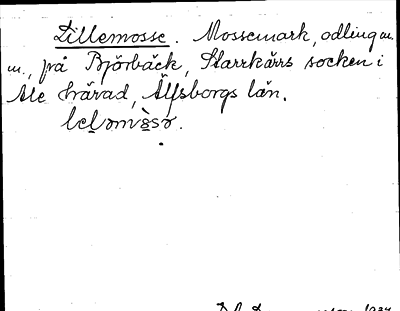 Lillemosse. Mossemark, odling m.
m., på Björbäck, Starrkärrs socken i
Ale härad, Älfsborgs län.